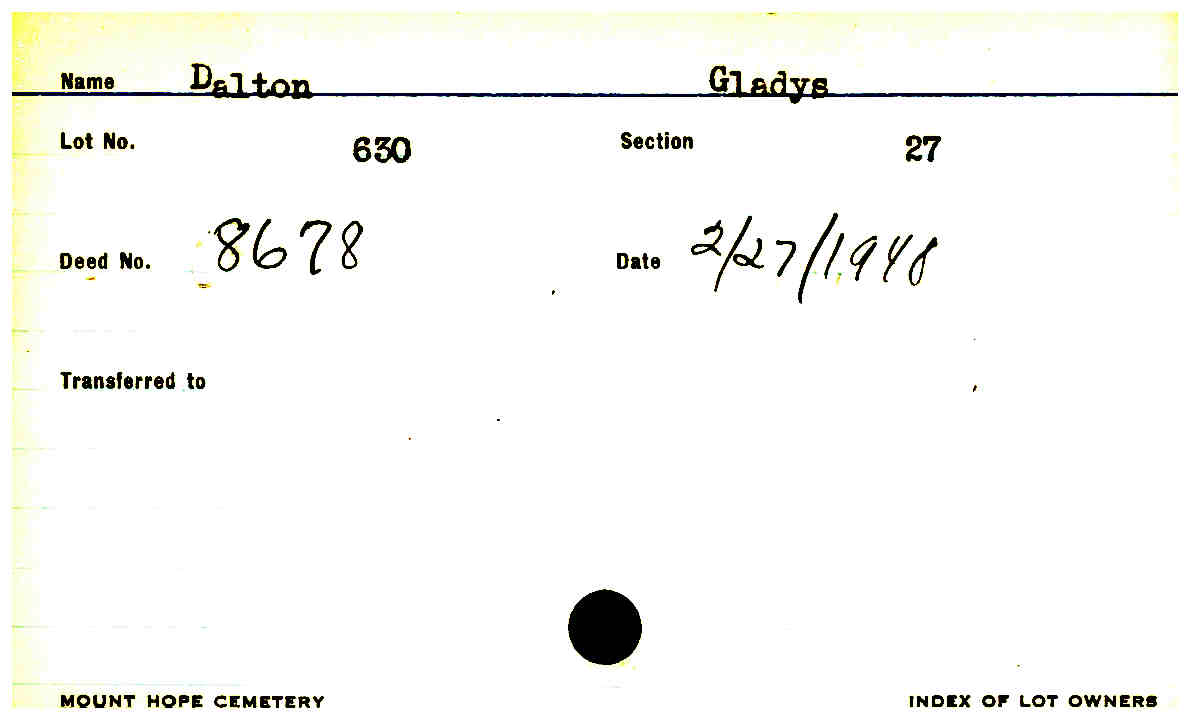 Name Dalton Gladys
Lot No. 630 Section 27
Deed No. 8678 Date 2/27/1948
Transferred to
MOUNT HOPE CEMETERY INDEX OF LOT OWNERS